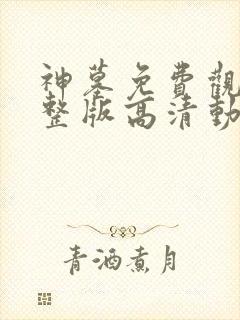 神墓免費觀
整版高清動
青酒煮月